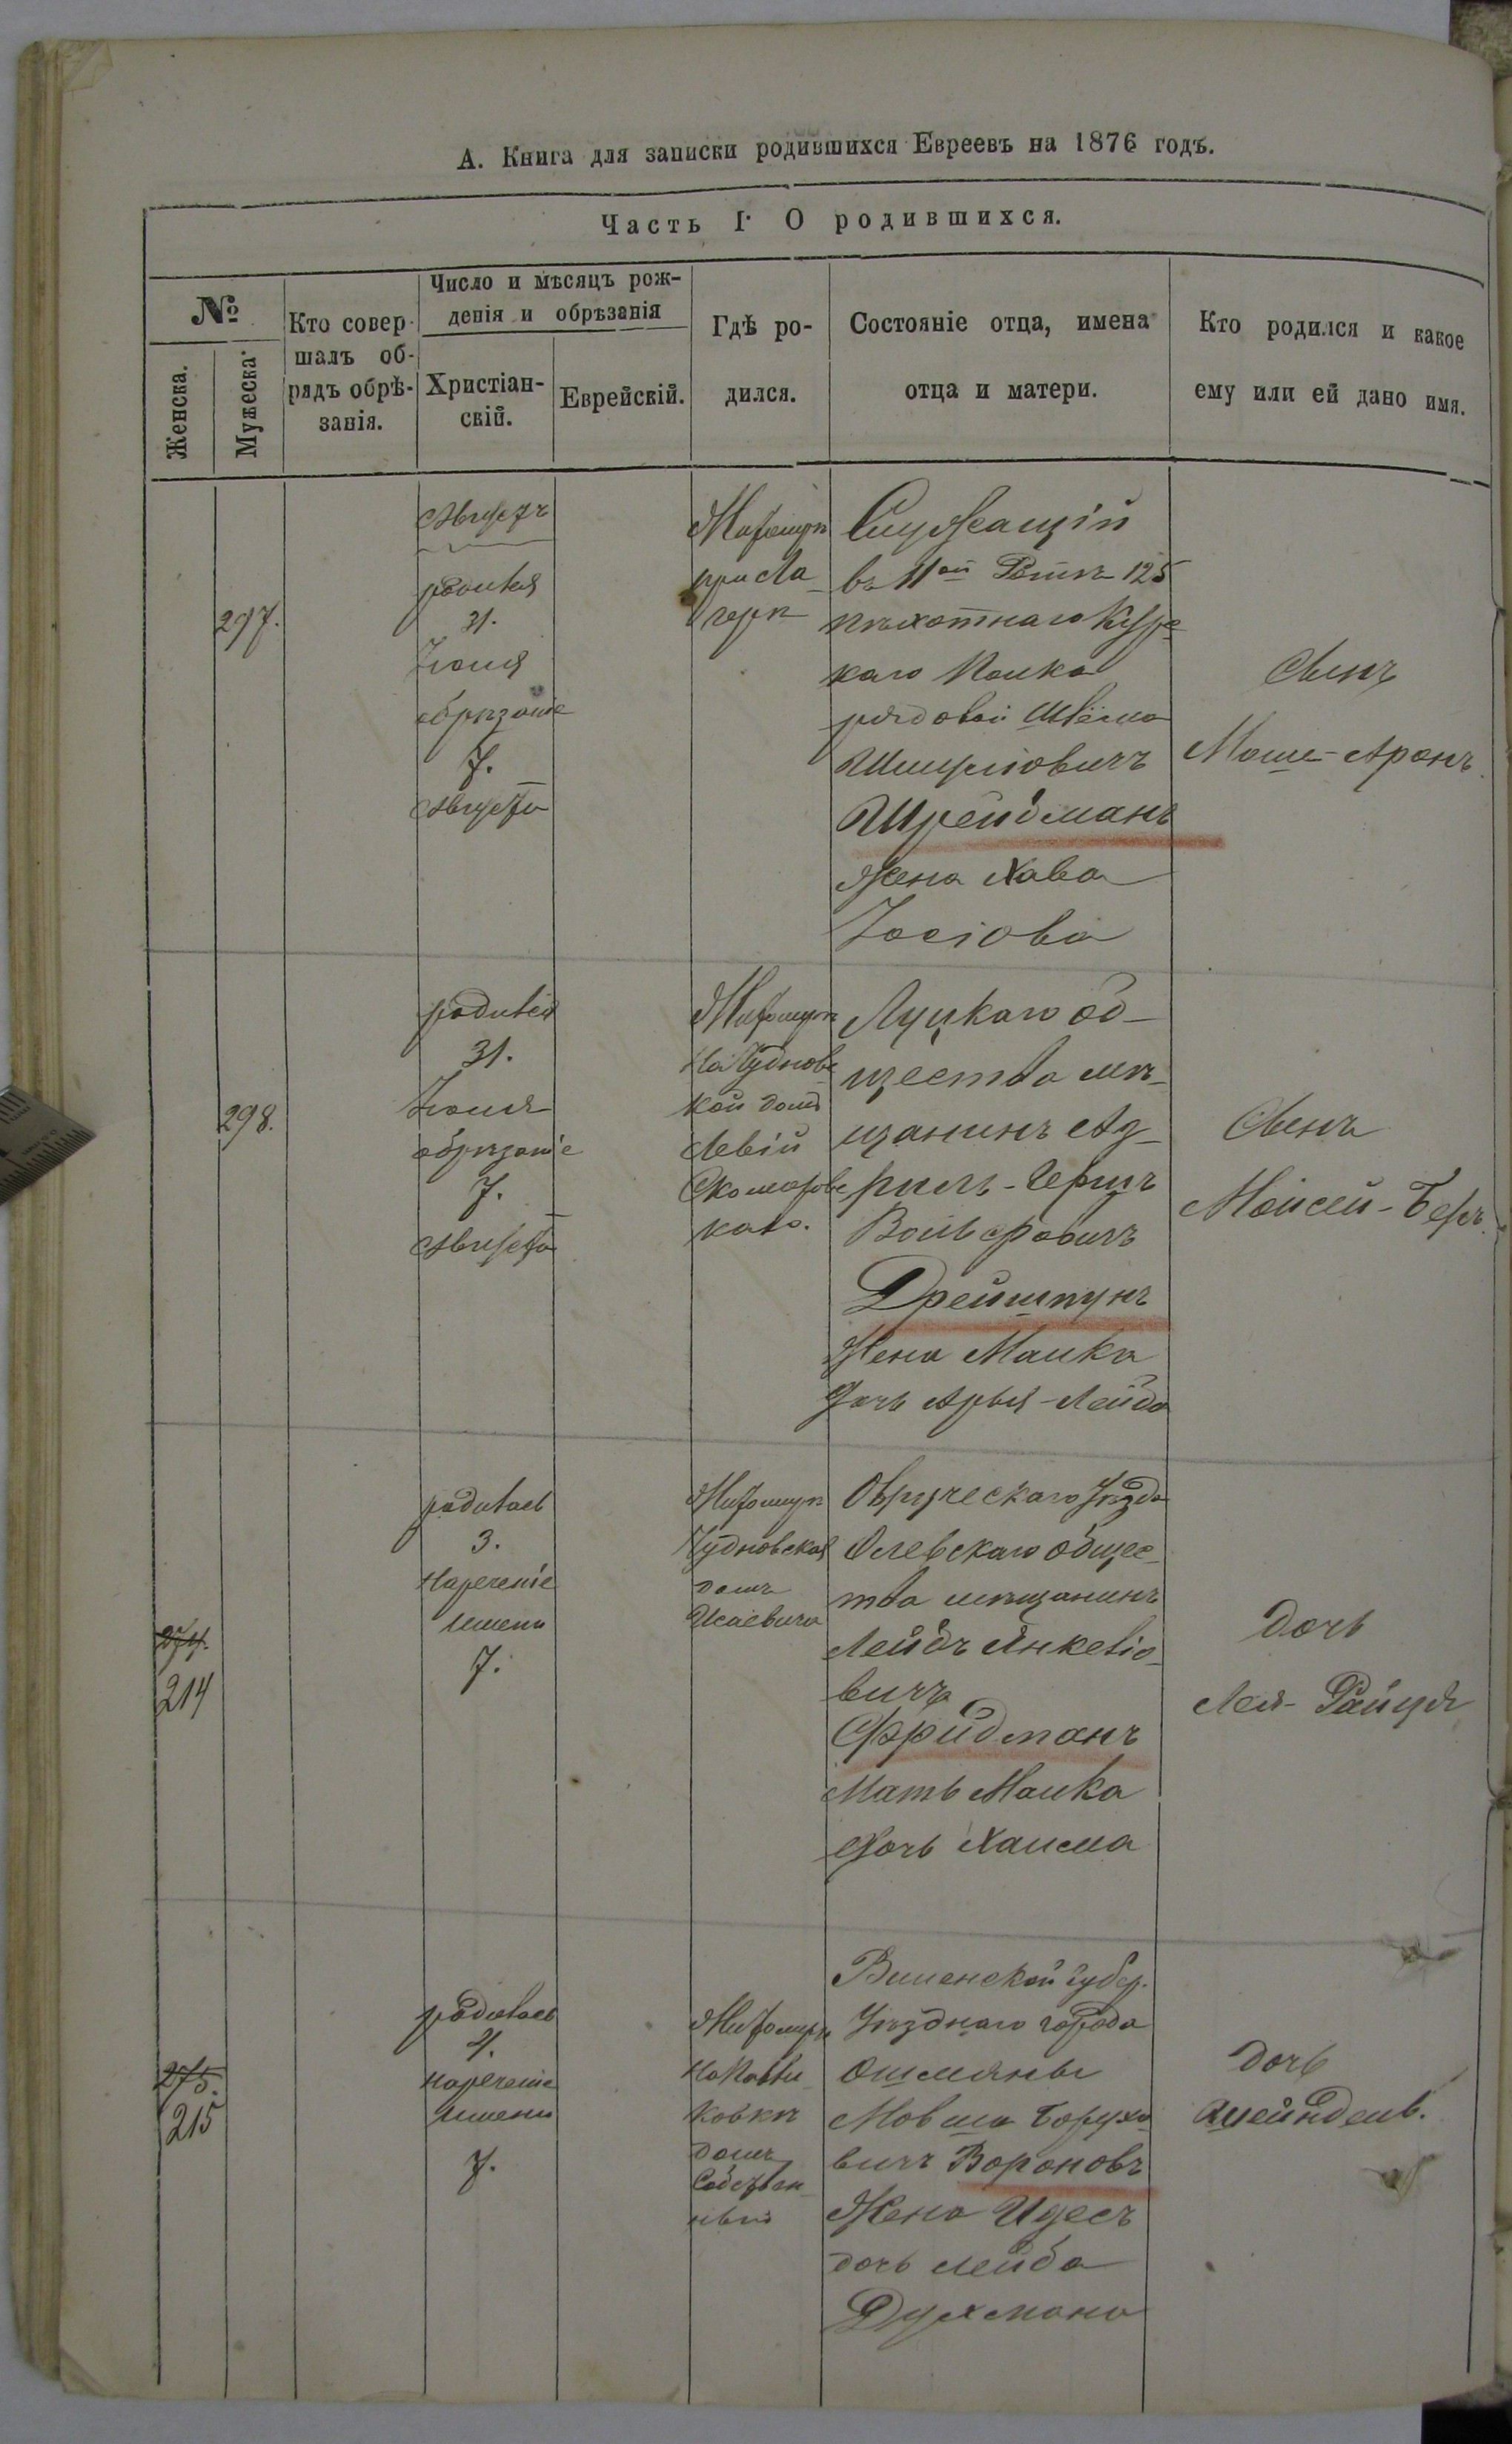 А. Книга для записки родившихся Евреевъ на 1876 годъ.
Часть I. О родившихся.
№
Женска.
Мужеска.
Кто совер-
шалъ об-
рядъ обрѣ-
занія.
Число и мѣсяцъ рож-
денія и обрѣзанія
Христіан-
скій.
Еврейскій.
Гдѣ ро-
дился.
Состояніе отца, имена
отца и матери.
Кто родился и какое
ему или ей дано имя.
297.
Августъ
родился
31.
Іюля
обрѣзаніе
7.
Августа
Житомірѣ
при Ла-
герѣ
Служащій
въ 11ой Ротѣ 125
пѣхотнаго Курс-
каго Полка
рядовой Шлёма
Шмуліовичъ
Шрейдманъ
Жена Хава
Іосіова
Сынъ
Моше-Аронъ.
298.
родился
31.
Іюля
обрѣзаніе
7.
Августа
Житомірѣ
на Чудновс-
кой домъ
Левій
Скоморовс
каго.
Луцкаго об-
щества мѣ-
щанинъ Аз-
риль-Гершъ
Вольфовичъ
Дрейшпунъ
Жена Малка
Дочь Арья-Лейба
Сынъ
Мойсей-Беръ.
274.
214
родилась
3.
нареченіе
имени
7.
Житомірѣ
Чудновская
домъ
Исаевича
Овруческаго Уѣзда
Олевскаго общес-
тва мѣщанинъ
Лейбъ Янкеліо-
вичъ
Фридманъ
Мать Малка
Дочь Хаима
дочь
Лея-Райця
275.
215
родилась
4.
нареченіе
имени
7.
Житомірѣ
на Павли-
ковкѣ
домъ
Собствен-
ный
Виленской губер.
Уѣзднаго города
Ошмяны
Мовша Борухо-
вичъ Вороновъ
Жена Идесъ
дочь Лейба
Духмана
дочь
Шейндель.